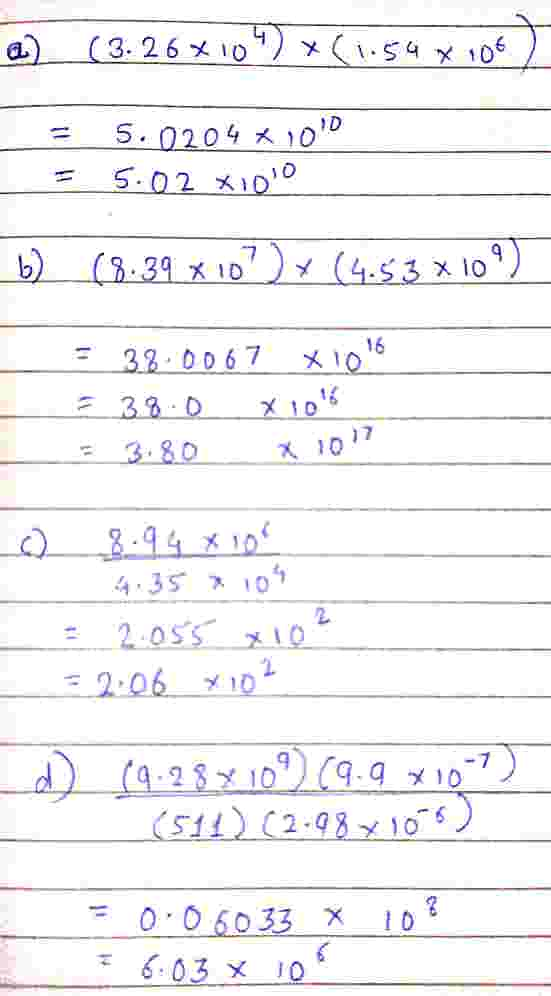 a) (3.26 × 10⁴) × (1.54 × 10⁶)
= 5.0204 × 10¹⁰
= 5.02 × 10¹⁰
b) (8.39 × 10⁷) × (4.53 × 10⁹)
= 38.0067 × 10¹⁶
= 38.0 × 10¹⁶
= 3.80 × 10¹⁷
c) 8.94 × 10⁶
4.35 × 10⁴
= 2.055 × 10²
= 2.06 × 10²
d) (9.28 × 10⁹) (9.9 × 10⁻⁷)
(511) (2.98 × 10⁻⁶)
= 0.06033 × 10⁸
= 6.03 × 10⁶